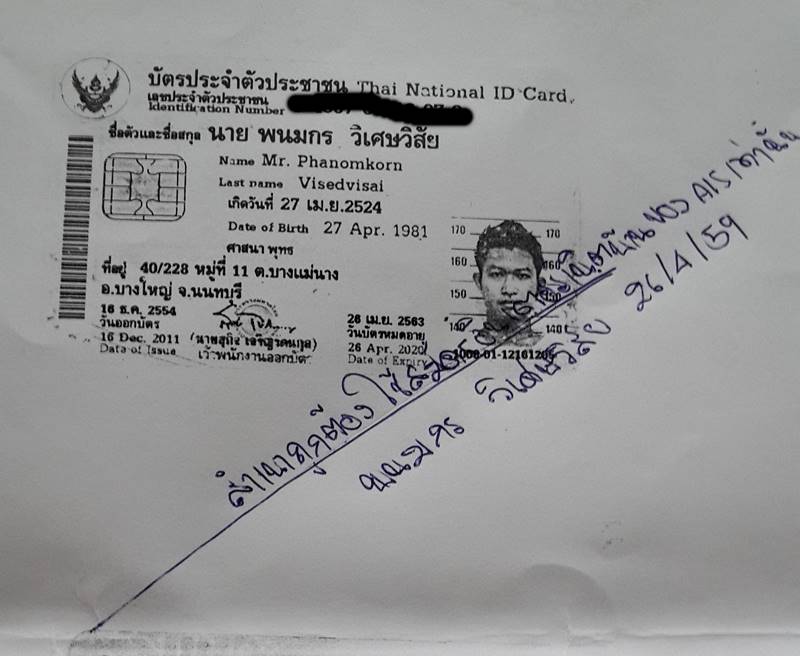 บัตรประจำตัวประชาชน Thai National ID Card
เลขประจำตัวประชาชน
Identification Number
ชื่อตัวและชื่อสกุล นาย พนมกร วิเศษวิสัย
Name Mr. Phanomkorn
Last name Visedvisai
เกิดวันที่ 27 เม.ย.2524
Date of Birth 27 Apr. 1981
ศาสนา พุทธ
ที่อยู่ 40/228 หมู่ที่ 11 ต.บางแม่นาง
อ.บางใหญ่ จ.นนทบุรี
16 ธ.ค. 2554
วันออกบัตร
16 Dec. 2011
Date of Issue
เจ้าพนักงานออกบัตร
26 เม.ย. 2563
วันบัตรหมดอายุ
26 Apr. 2020
Date of Expiry
170 170
160 160
150 150
140 140
สำเนาถูกต้อง ใช้สมัคร ของ AIS เท่านั้น
พนมกร วิเศษวิสัย 26/4/59